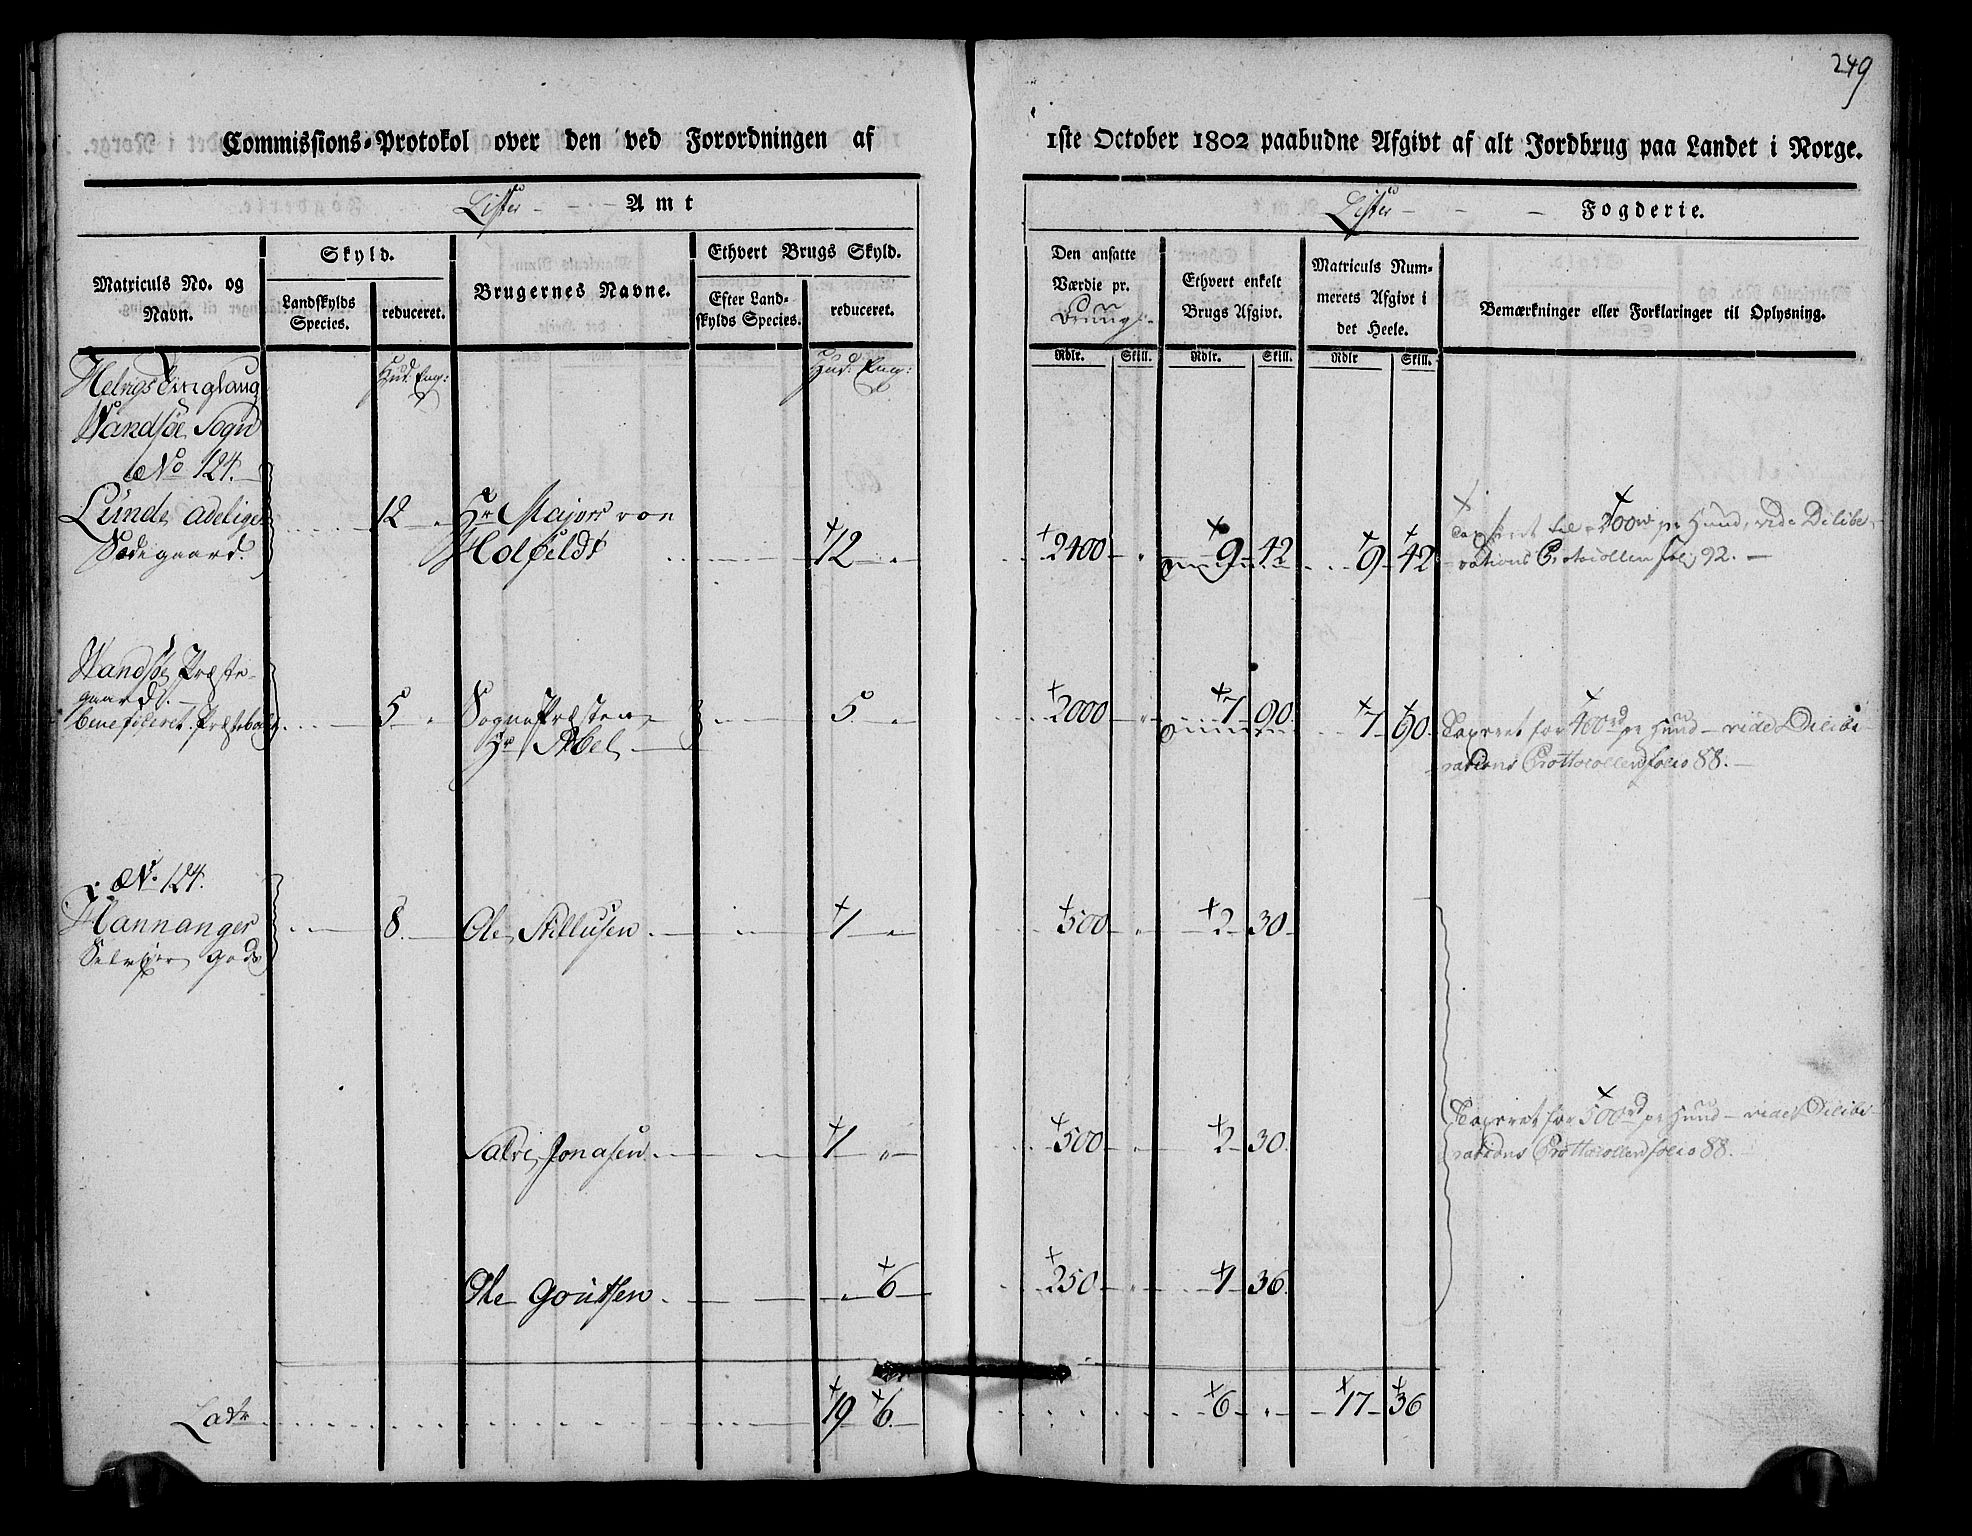 249
Commissions-Protokol over den ved Forordningen af
1ste October 1802 paabudne Afgivt af alt Jordbrug paa Landet i Norge.
Lister - - - Amt
Lister - - - Fogderie.
Matriculs No. og Navn.
Skyld.
Landskylds Species.
reduceret.
Brugernes Navne.
Ethvert Brugs Skyld.
Efter Landskylds Species.
reduceret.
Den ansatte Værdie pr. Brug
Ethvert enkelt Brugs Afgivt.
Matriculs Nummerets Afgivt i det Heele.
Bemærkninger eller Forklaringer til Oplysning.
Rdlr. Skill. Rdlr. Skill. Rdlr Skill.
Hud: Eng: Hud: Eng:
Tinglaug
Wandsøe Sogn
No 124.
Lunde adelige 12 Hr Major von
Sædegaard. Holfeldt 12 2400 9 42 9 42 400rd pr Hud, vide Delibe-
rations Protocollen fol 92.
Wandsøe Præste-
gaard.
beneficeret Præstebolig 5 Sognepræsten 5 2000 7 90 7 90 Taxeret for 400rd pr Hud - vide Delibe-
Hr Abel rations Prottocollen folio 88.
No 124.
Hannanger 8 Ole Tellusen 1 500 2 30
Selveier gods
Salve Jonasen 1 500 2 30 Taxeret for 500rd pr Hud - vide Delibe-
rations Prottocollen folio 88.
Ole Goutsen 6 250 1 36
Latr 19 6 6 17 36